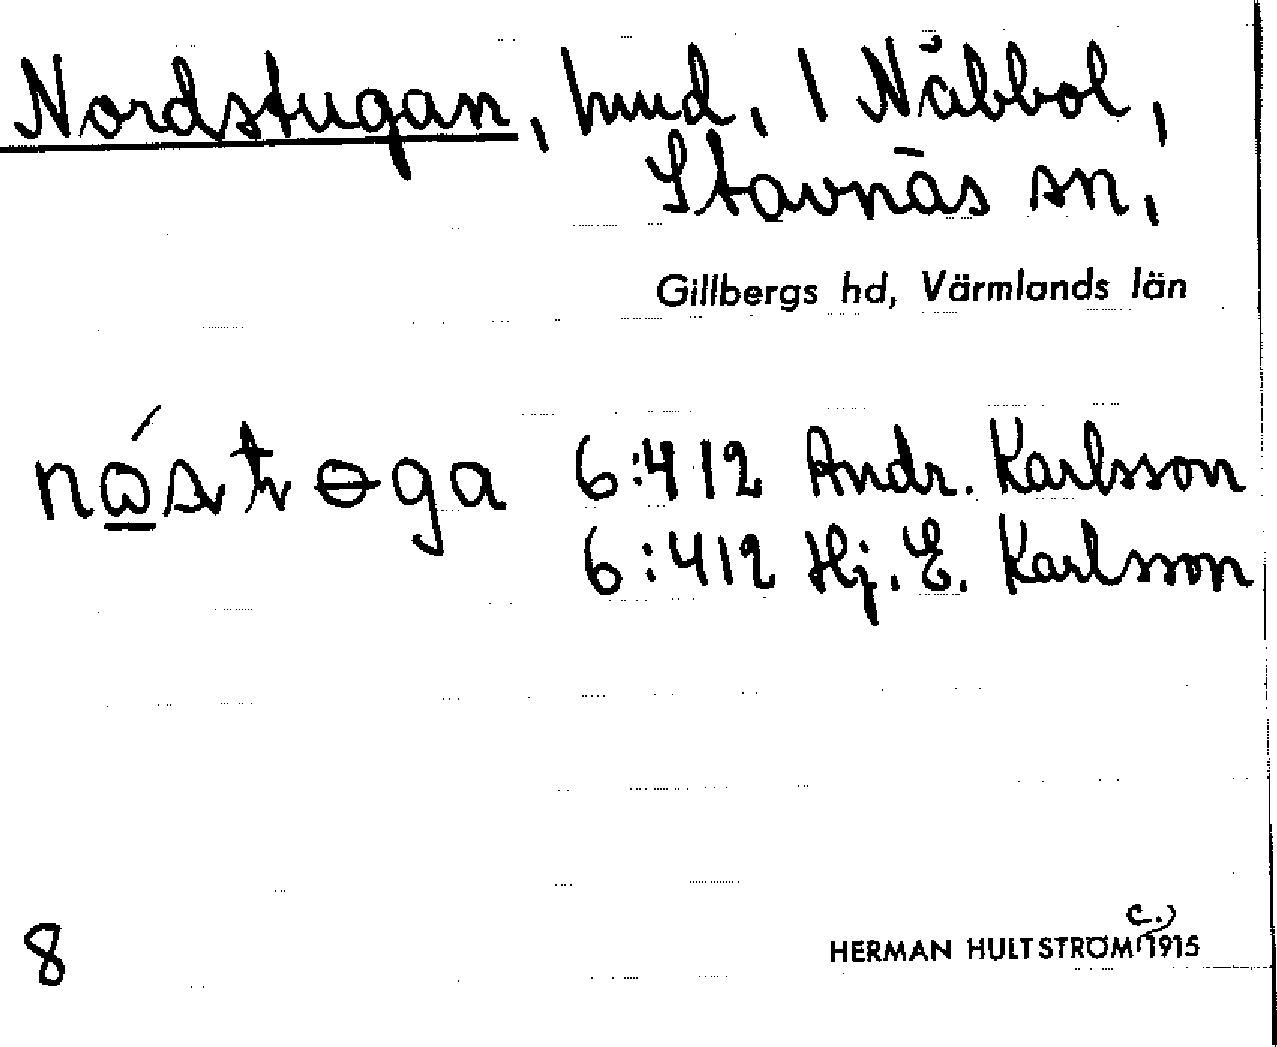 Nordstugan, hmd, 1 Näbbol,
Stavnäs sn,
Gillbergs hd, Värmlands län
6:412 Andr. Karlsson
6:412 Hj. E. Karlsson
8
HERMAN HULTSTRÖM (c.) 1915